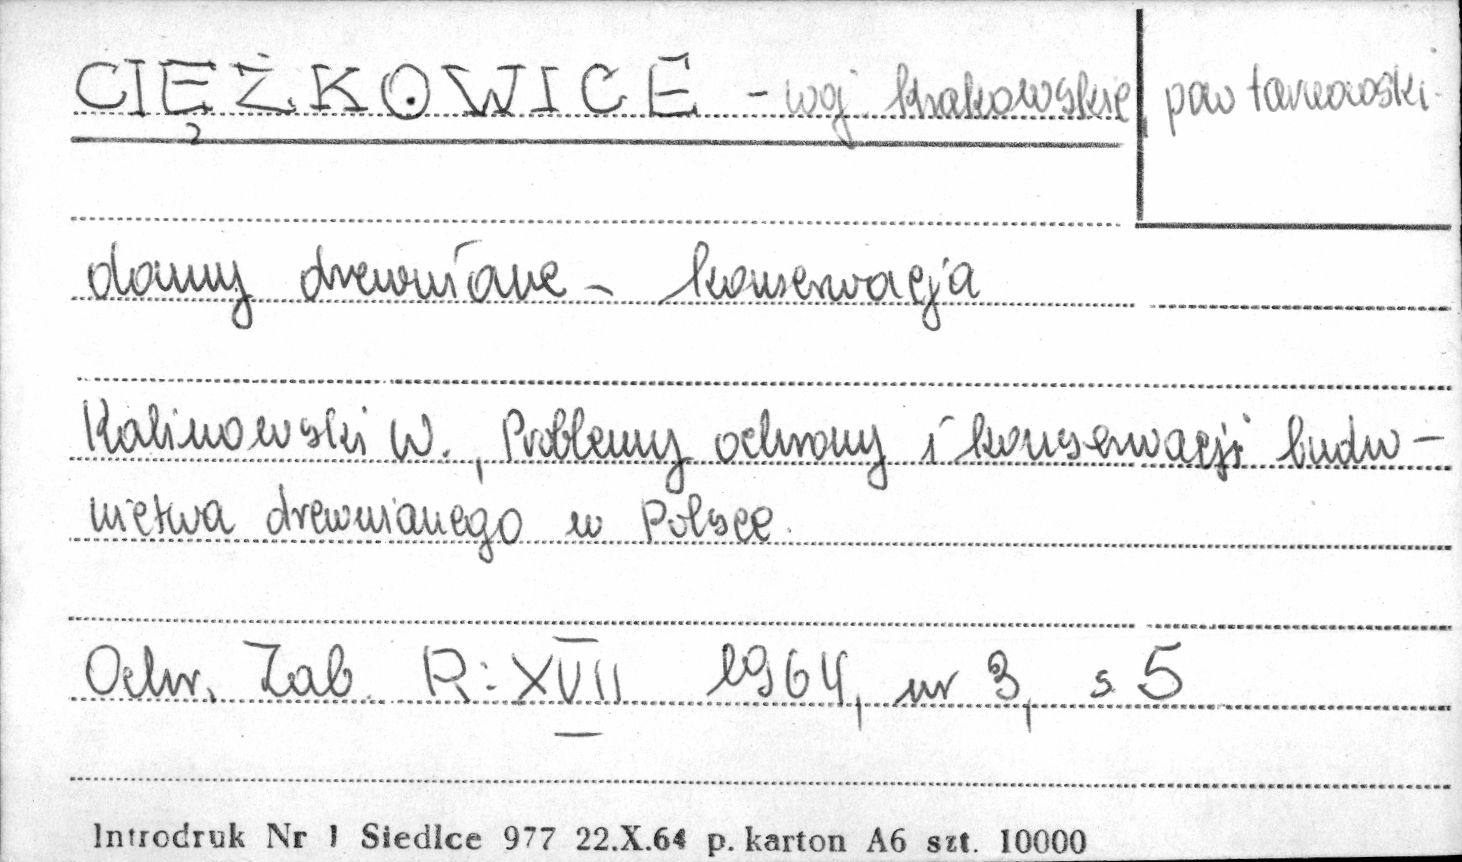 CIĘŻKOWICE - woj. krakowskie, pow tarnowski
domy drewniane - konserwacja
Kalinowski W., Problemy ochrony i konserwacji budow-
nictwa drewnianego w Polsce.
Ochr. Zab. R: XVII 1964, nr 3, s 5
Introdruk Nr 1 Siedlce 977 22.X.64 p. karton A6 szt. 10000